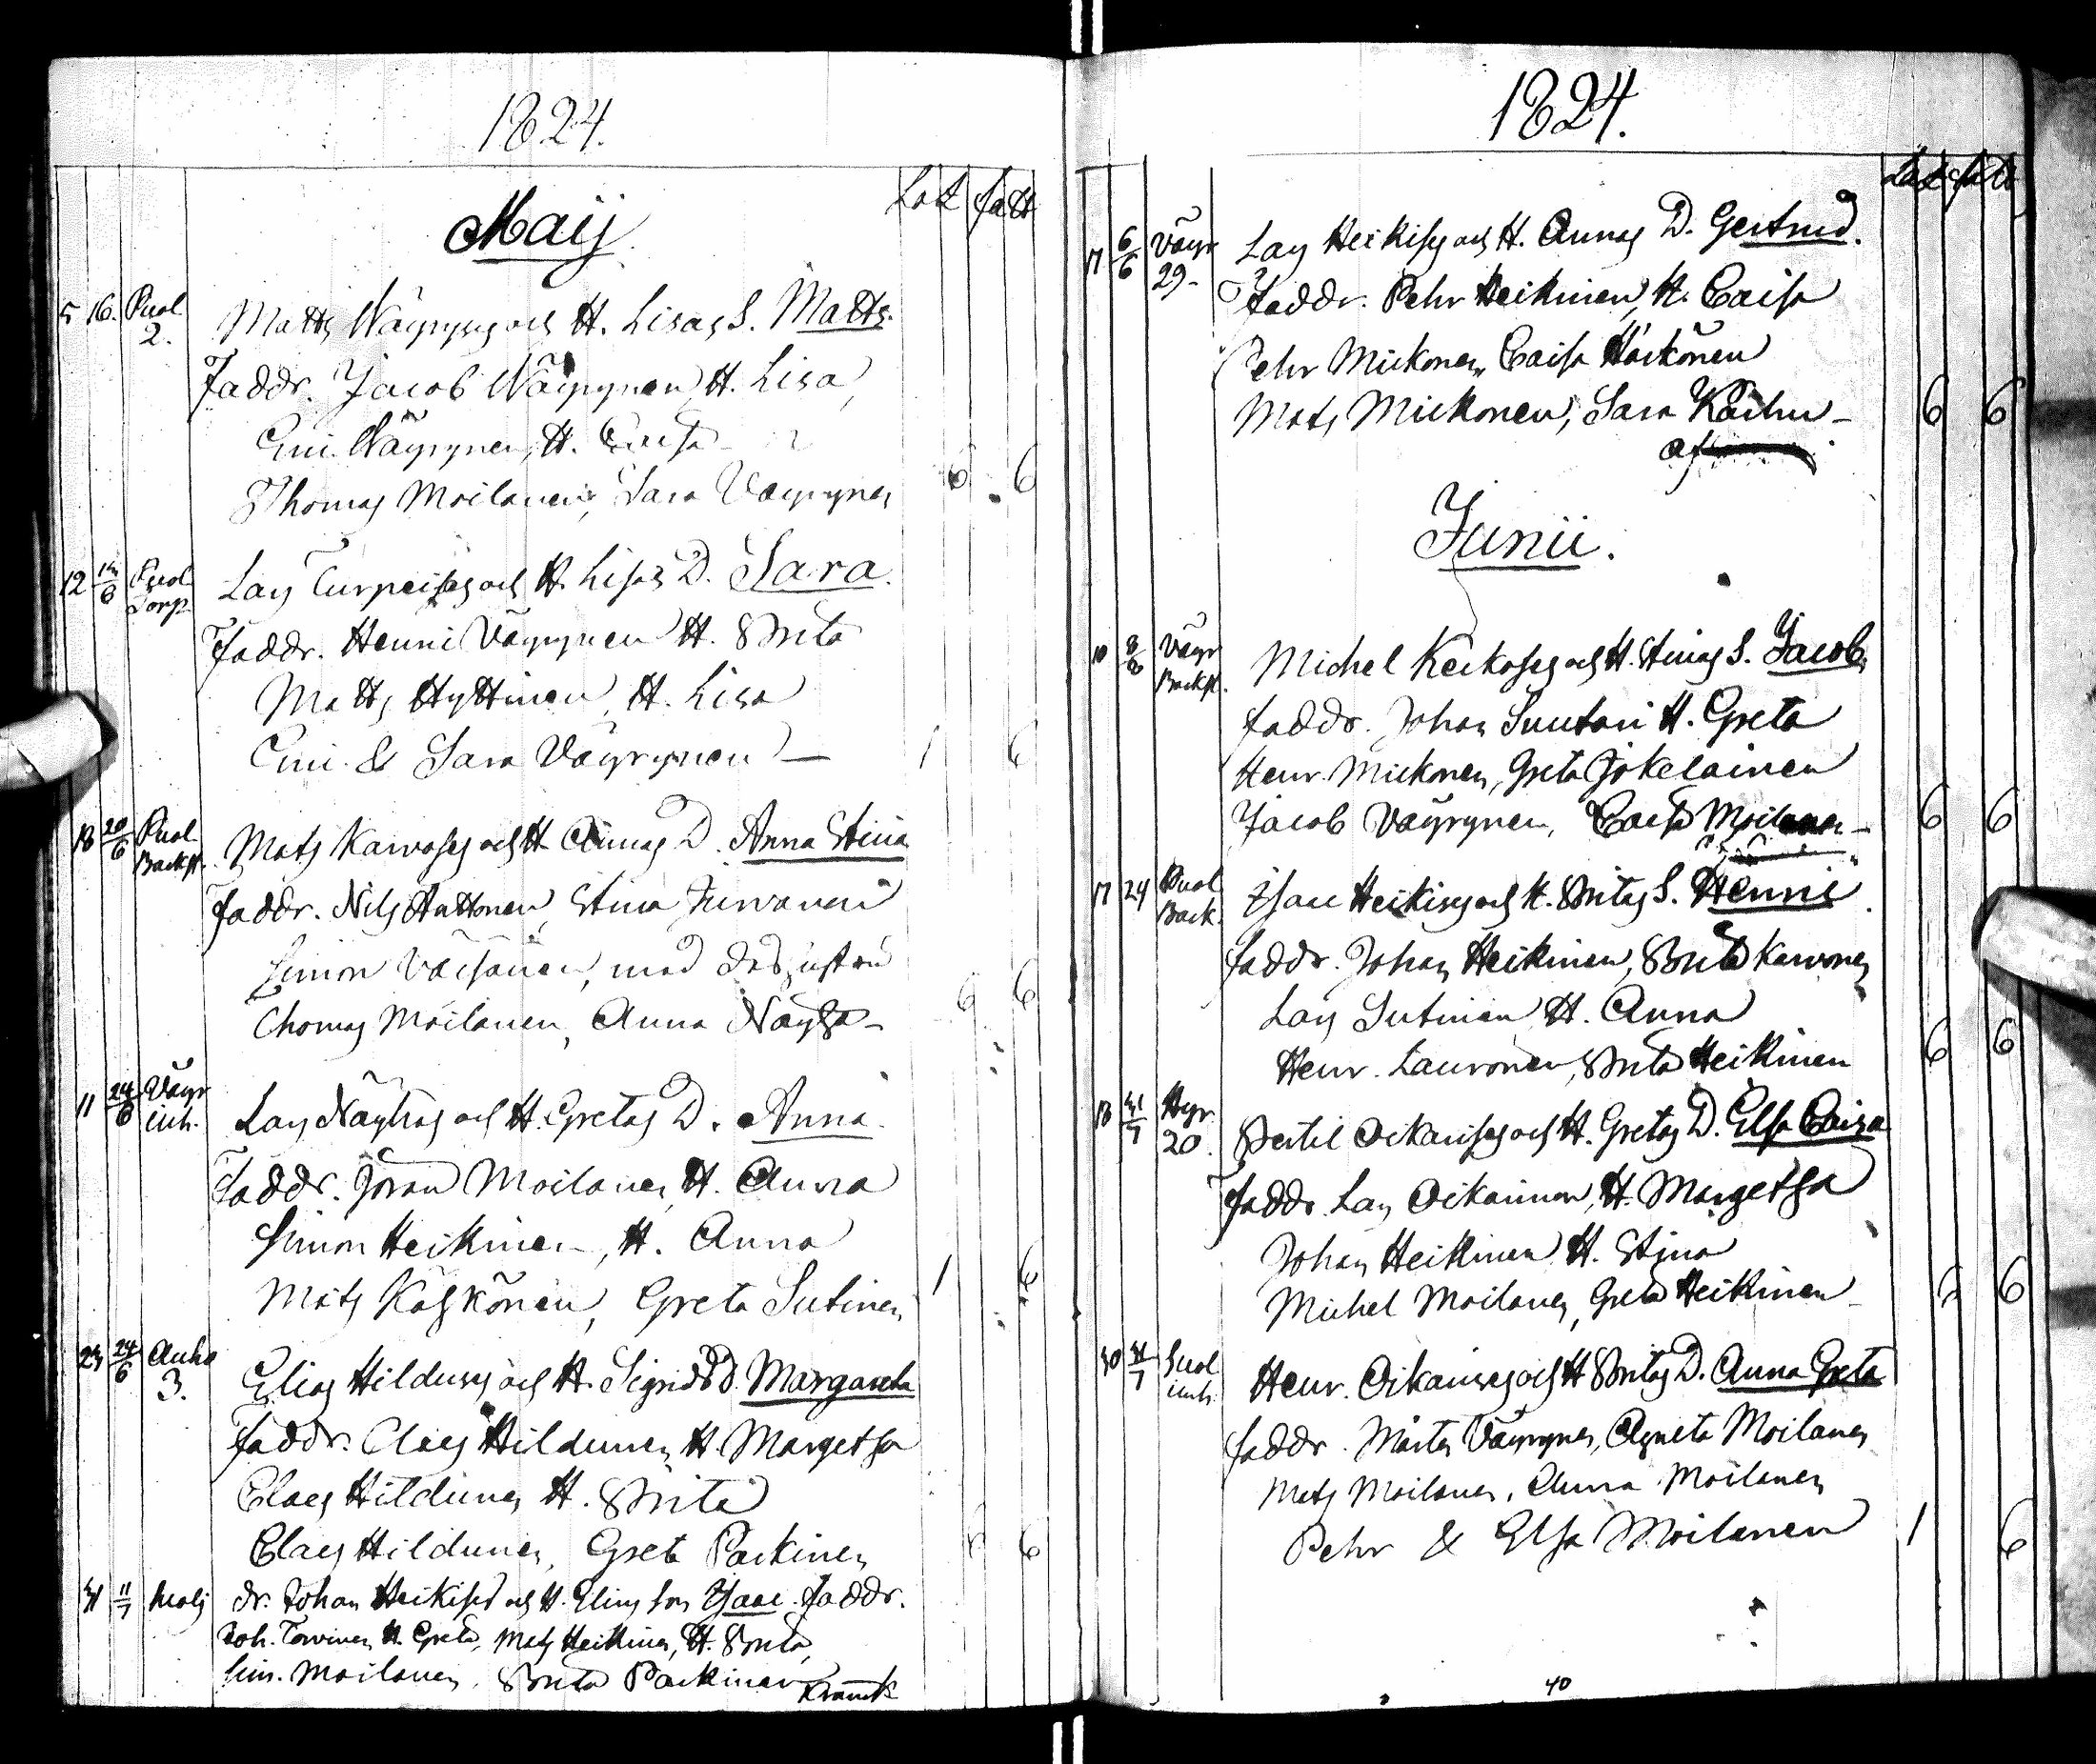 1824.
Maij
5 16. Puol 2. Matts Wäyryses och H. Lisas S. Matts.
Faddr. Jacob Wäyrynen, H. Lisa,
Wäyrynen, H. Caisa
Thomas Moilanen, Sara Väyrynen 6 6
12 13/6 Puol Torp. Lars Turpeises och H. Lisas D. Sara.
Faddr. Henric Väyrynen H. Brita
Matts Hyttinen, H. Lisa
& Sara Väyrynen 1 6
18 20/6 Puol Backst. Mats Karvoses och H. Annas D. Anna Stina
Faddr. Nils Huttonen, Stina Turvanen
Simon Väisänen, med dess hustru
Thomas Moilanen, Anna Näyhä 6 6
11 24/6 Väyr inh. Lars Näyhäs och H. Gretas D. Anna.
Faddr. Jöran Moilanen, H. Anna
Simon Heikinen, H. Anna
Mats Käskönen, Greta Sutinen 1 6
23 24/6 Auho 3. Elias Hilduses och H. Sigrids D. Margareta
Faddr. Claes Hildunen, H. Margetha
Claes Hildunen H. Brita
Claes Hildunen, Greta Parkinen 6 6
31 11/7 dr. Johan Heikises och H. Elins son Isaac. Faddr.
Joh. Torvinen, H. Greta, Mats Heikinen, H. Brita,
Sim. Moilanen, Brita Parkinen
1824.
17 6/6 Väyr 29. Lars Heikises och H. Annas D. Gertrud.
Faddr. Pehr Heikinen, H. Caisa
Pehr Mickonen, Caisa Härkönen
Mats Mickonen, Sara Karhu 6 6
Junii.
10 Väyr Backst. Michel Keckoses och H. Stinas S. Jacob.
faddr. Johan Suutari H. Greta
Henr. Mickonen, Greta Jokelainen
Jacob Väyrynen, Caisa Moilanen 6 6
17 24 Puol Back. Isaac Heikises och H. Britas S. Henric
faddr. Johan Heikinen, Brita Karvonen
Lars Sutinen H. Anna
Henr. Lauronen, Brita Heikinen 6 6
13 Hyr. 20. Bertil Oikarises och H. Gretas D. Elsa Caisa
faddr. Lars Oikarinen, H. Margetha
Johan Heikinen H. Stina
Michel Moilanen, Greta Heikinen 6 6
30 inh. Henr. Oikarises och H Britas D. Anna Greta
faddr. Mårten Väyrynen, Agneta Moilanen
Mats Moilanen, Anna Moilanen
Pehr & Elsa Moilanen 1 6
40